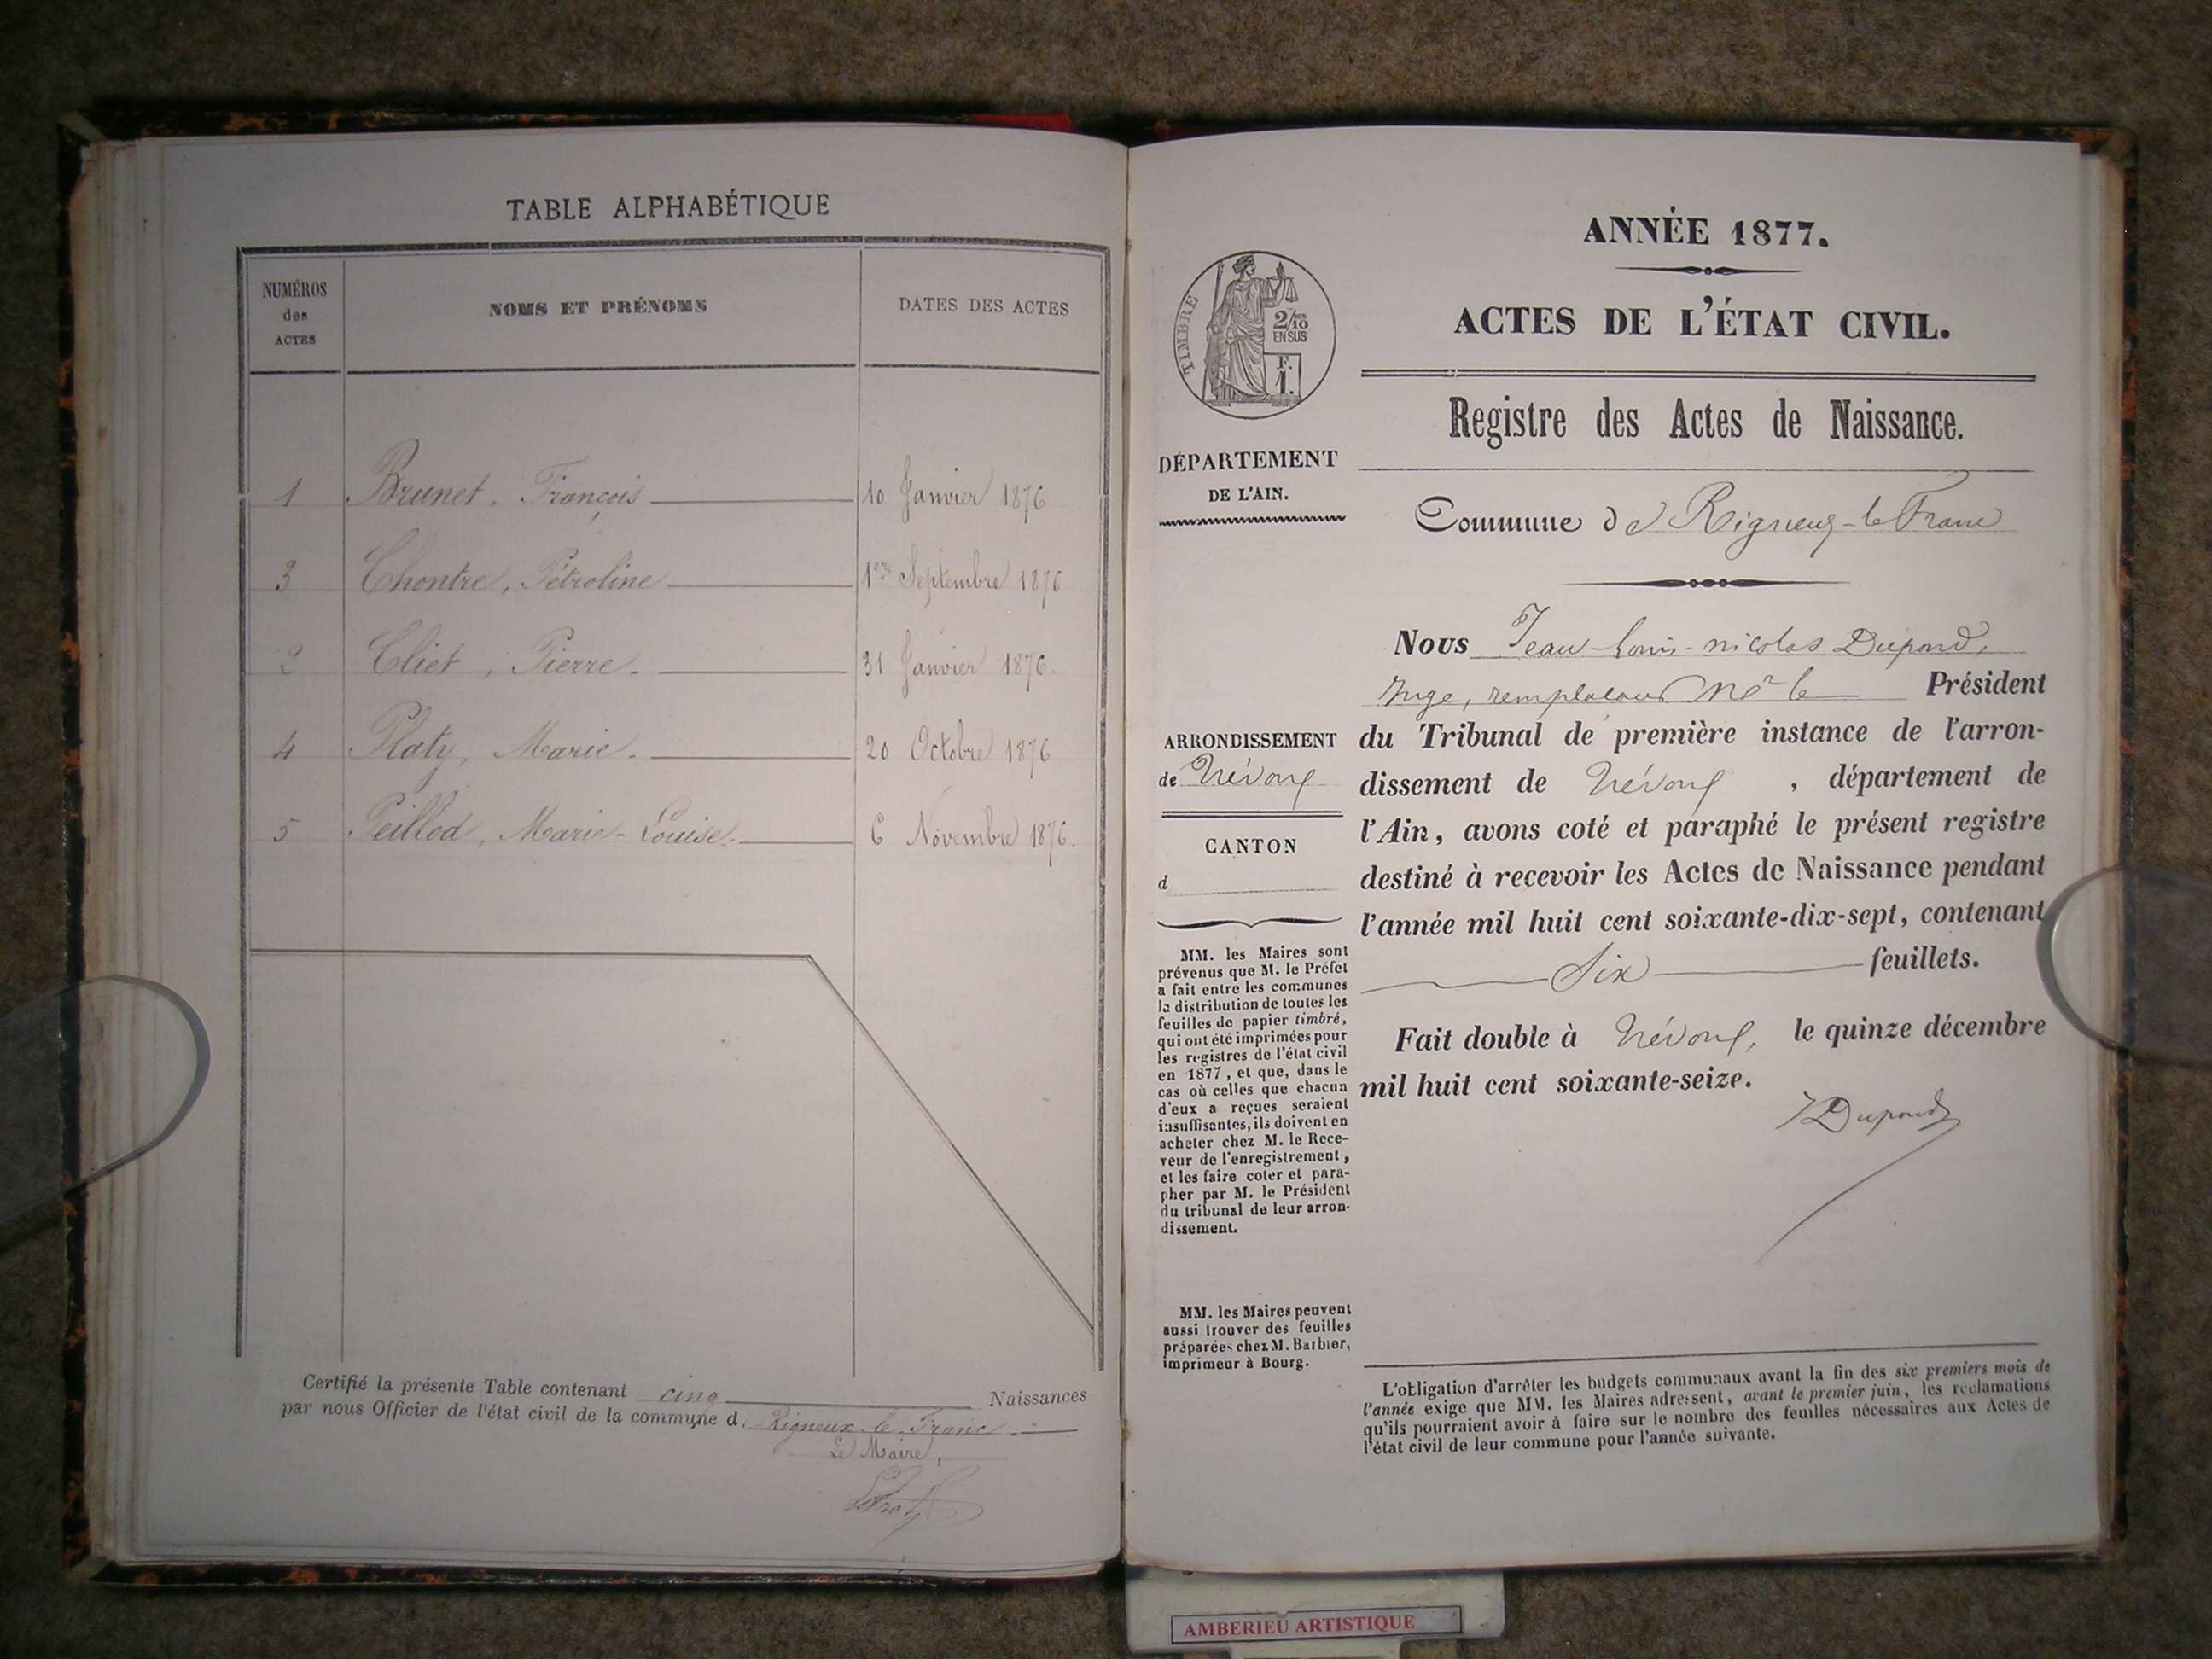 TABLE ALPHABÉTIQUE
NUMÉROS
des
ACTES
NOMS ET PRÉNOMS
DATES DES ACTES
1 Brunet, François 10 Janvier 1876
3 Chontre, Pétroline 1er Septembre 1876
2 Cliet, Pierre. 31 Janvier 1876.
4 Platy, Marie. 20 Octobre 1876
5 Peillod, Marie-Louise. 6 Novembre 1876.
Certifié la présente Table contenant cinq Naissances
par nous Officier de l'état civil de la commune d. Rigneux-le-Franc.
Le Maire,
ANNÉE 1877.
ACTES DE L'ÉTAT CIVIL.
TIMBRE
2/10
EN SUS
F.
1.
Registre des Actes de Naissance.
DÉPARTEMENT
DE L'AIN.
Commune de Rigneux-le-Franc
Nous Jean-Louis-nicolas Dupond,
Juge, remplaçant Mr le Président
du Tribunal de première instance de l'arron-
dissement de Trévoux, département de
l'Ain, avons coté et paraphé le présent registre
destiné à recevoir les Actes de Naissance pendant
l'année mil huit cent soixante-dix-sept, contenant
Six feuillets.
Fait double à Trévoux, le quinze décembre
mil huit cent soixante-seize.
Dupond
ARRONDISSEMENT
de Trévoux
CANTON
d
MM. les Maires sont
prévenus que M. le Préfet
a fait entre les communes
la distribution de toutes les
feuilles de papier timbré,
qui ont été imprimées pour
les registres de l'état civil
en 1877, et que, dans le
cas où celles que chacun
d'eux a reçues seraient
insuffisantes, ils doivent en
acheter chez M. le Rece-
veur de l'enregistrement,
et les faire coter et para-
pher par M. le Président
du tribunal de leur arron-
dissement.
MM. les Maires peuvent
aussi trouver des feuilles
préparées chez M. Barbier,
imprimeur à Bourg.
L'obligation d'arrêter les budgets communaux avant la fin des six premiers mois de
l'année exige que MM. les Maires adressent, avant le premier juin, les reclamations
qu'ils pourraient avoir à faire sur le nombre des feuilles nécessaires aux Actes de
l'état civil de leur commune pour l'année suivante.
AMBERIEU ARTISTIQUE